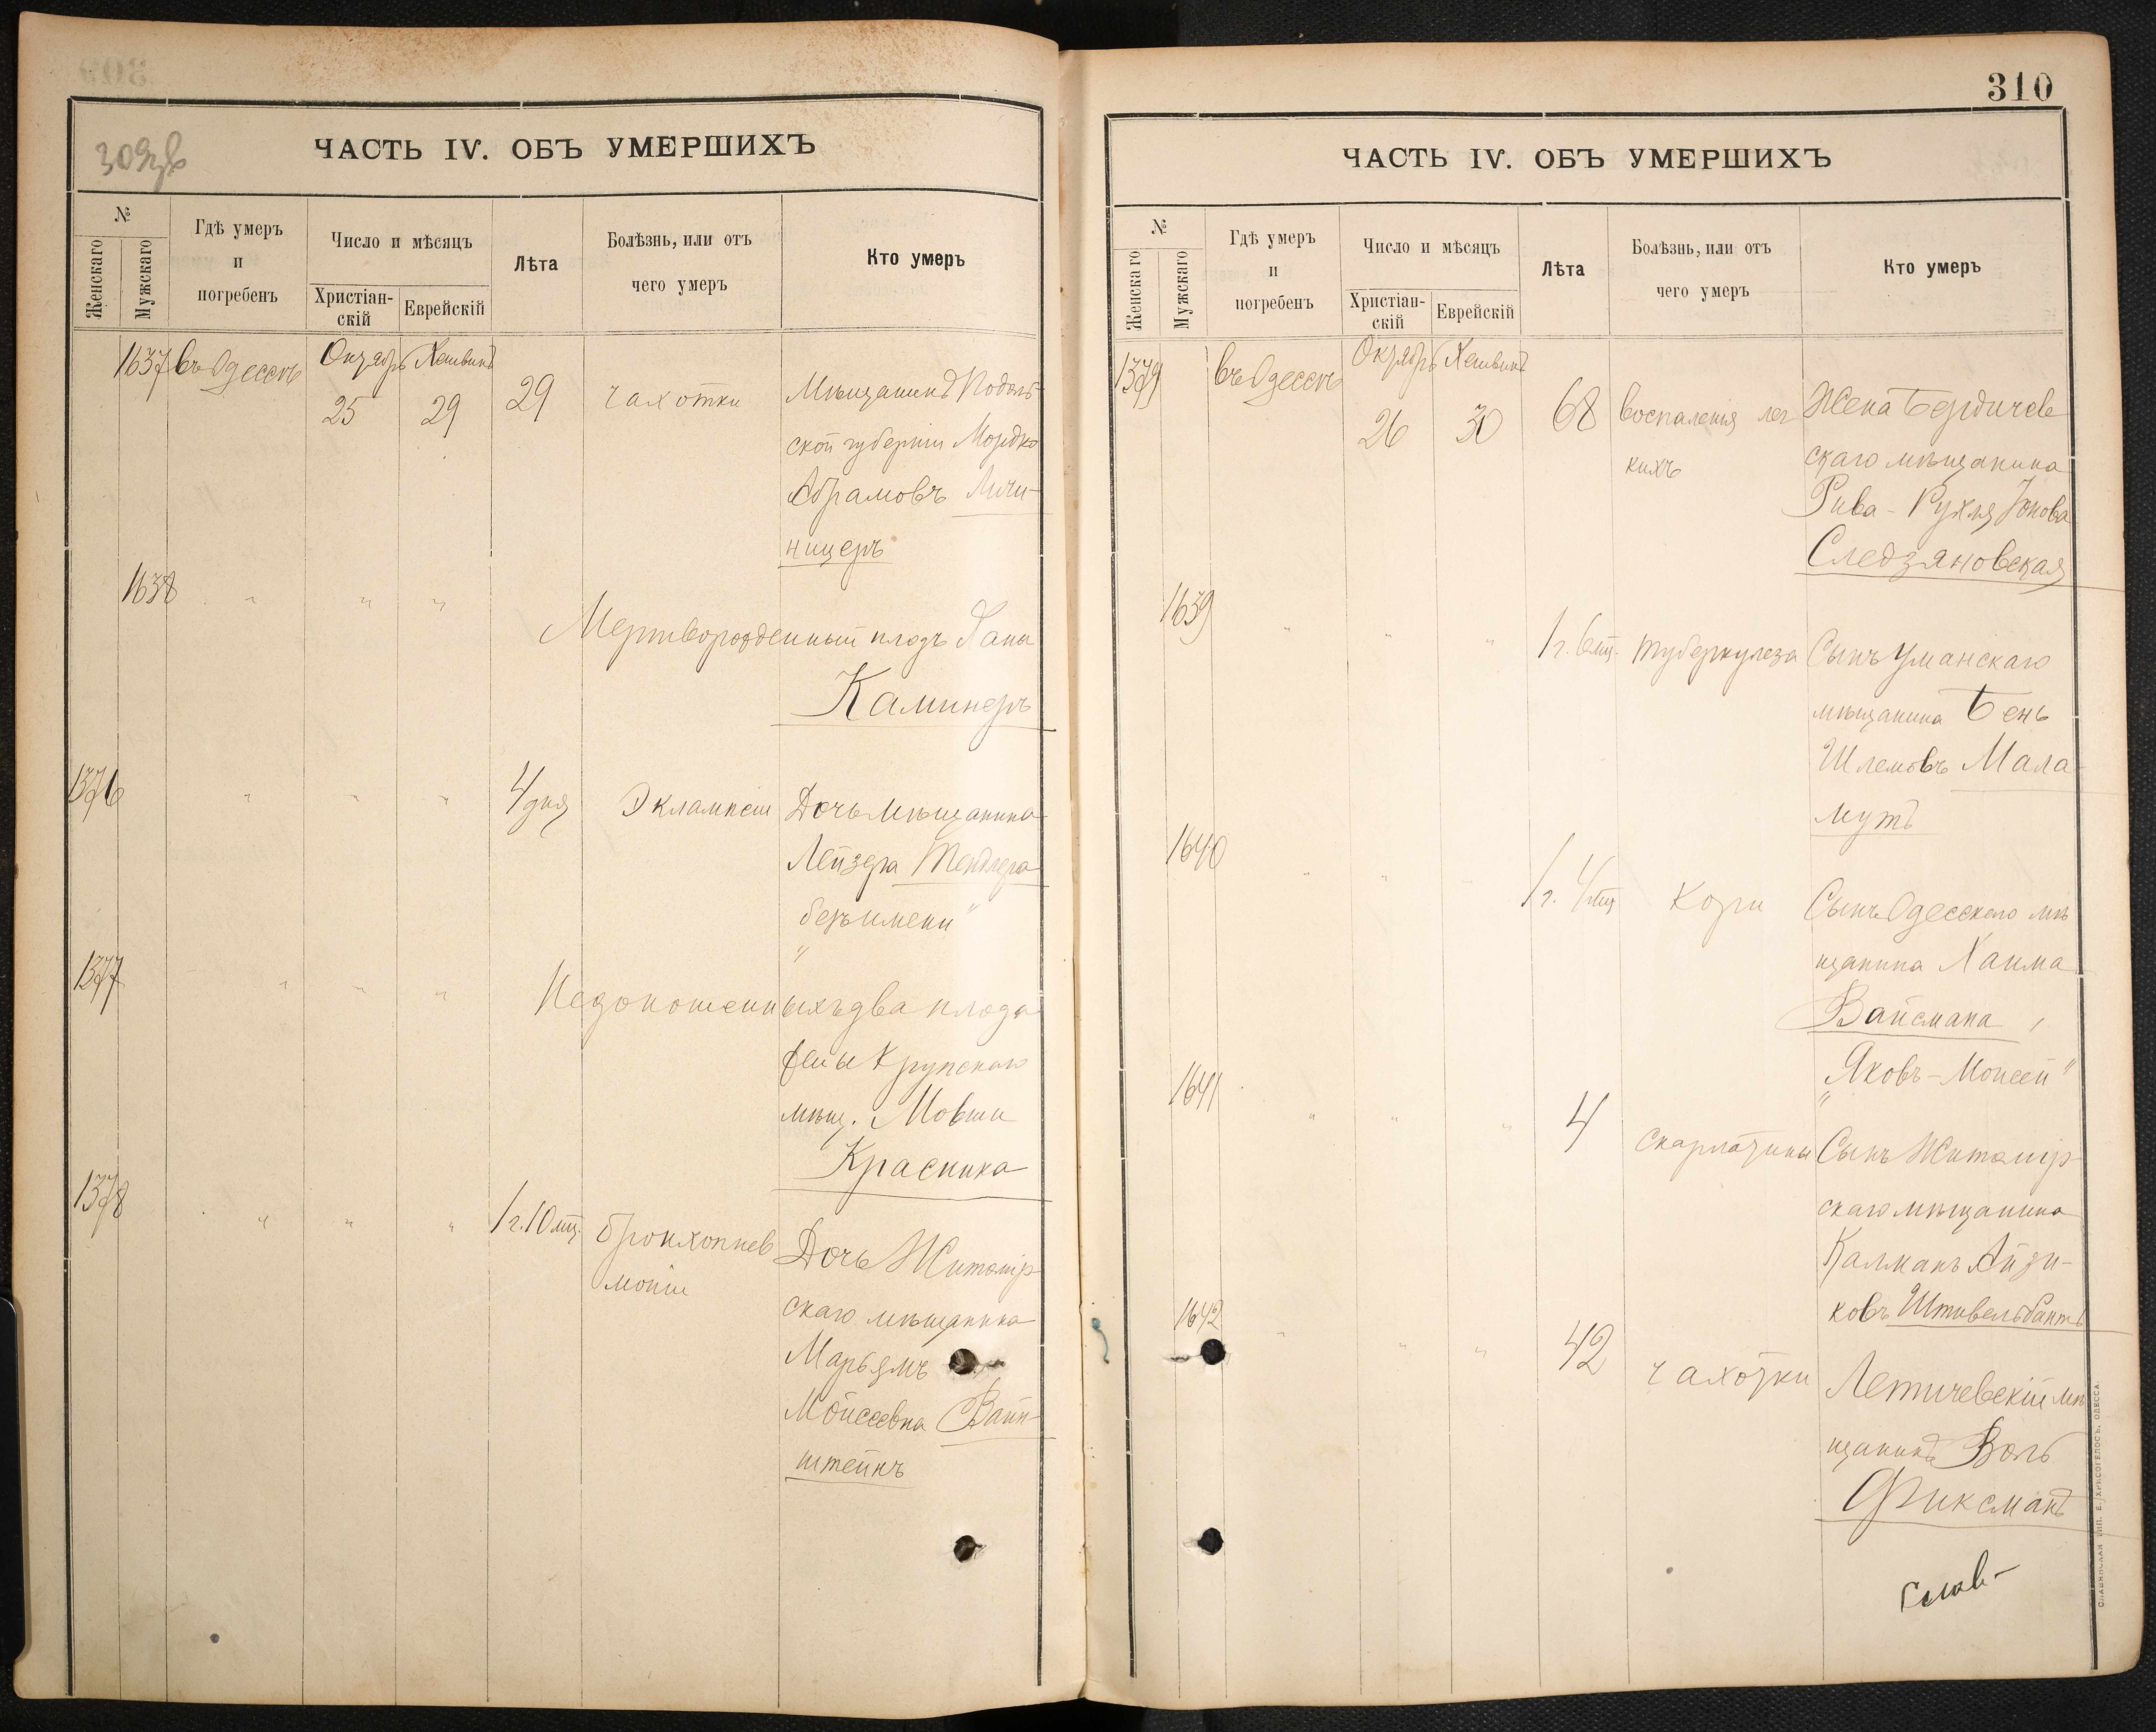 309об
ЧАСТЬ IV. ОБЪ УМЕРШИХЪ
№
Женскаго
Мужскаго
Гдѣ умеръ
и
погребенъ
Число и мѣсяцъ
Христіан-
скій
Еврейскій
Лѣта
Болѣзнь, или отъ
чего умеръ
Кто умеръ
1637 въ Одессѣ Октябр Хешвинъ
25 29 29 чахотки Мѣщанинъ Подоль
ской губерніи Мордко
Абрамовъ Личи-
ницеръ
1638 " " "
Мертворожденный плодъ Ханы
Каминеръ
1376 " " " 4 дня Эклампсіи Дочь мѣщанина
Лейзера Тендлера
безъ имени"
"
1377 " " "
Недоношенныхъ два плода
Крупскаго
мѣщ. Мовши
Красника
1378 " " " 1 г. 10 мц. Бронхопнев Дочь Житомір
моніи
скаго мѣщанина
Марьямъ
Мойсеевна Вайн-
штейнъ
310
ЧАСТЬ IV. ОБЪ УМЕРШИХЪ
№
Женскаго
Мужскаго
Гдѣ умеръ
и
погребенъ
Число и мѣсяцъ
Христіан-
скій
Еврейскій
Лѣта
Болѣзнь, или отъ
чего умеръ
Кто умеръ
1379 въ Одессѣ Октябр Хешвинъ
26 30 68 воспаленія лег Жена Бердичев
кихъ
скаго мѣщанина
Рива-Рухля Іонова
Следзяновская
1639 " " " 1 г. 6 мц. туберкулеза Сынъ Уманскаго
мѣщанина Бень
Шлемовъ Мала-
мутъ
1640 " " " 1 г. 4 мц кори Сынъ Одесскаго мѣ
щанина Хаима
Вайсмана,
"Яковъ-Моисей"
1641 " " " 4 скарлатины Сынъ Житомір-
скаго мѣщанина
Калманъ Айзи-
ковъ Штивельбантъ
1642 " " " 42 чахотки Летичевскій мѣ
щанинъ Воль
Фиксманъ
СЛАВЯНСКАЯ ТИП. Е. ХРИСОГЕЛОСЪ, ОДЕССА.